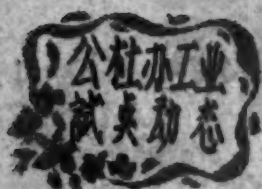 公社办工业
试点动态